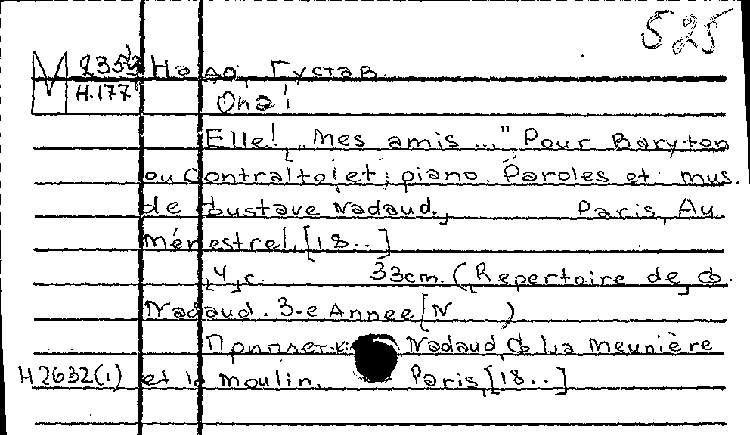 525
М 235⁴ Надо, Густав
Н.177 Она!
Elle! „Mes amis ..." Pour Baryton
ou Contralto et piano. Paroles et mus.
de Gustave Nadaud. Paris, Au
Ménestrel, [18..]
4 с. 33cm. (Repertoire de G.
Nadaud. 3-e Annee [N )
Приплет. к: Nadaud, G. La meunière
Н2632(1) et le moulin. Paris, [18..]